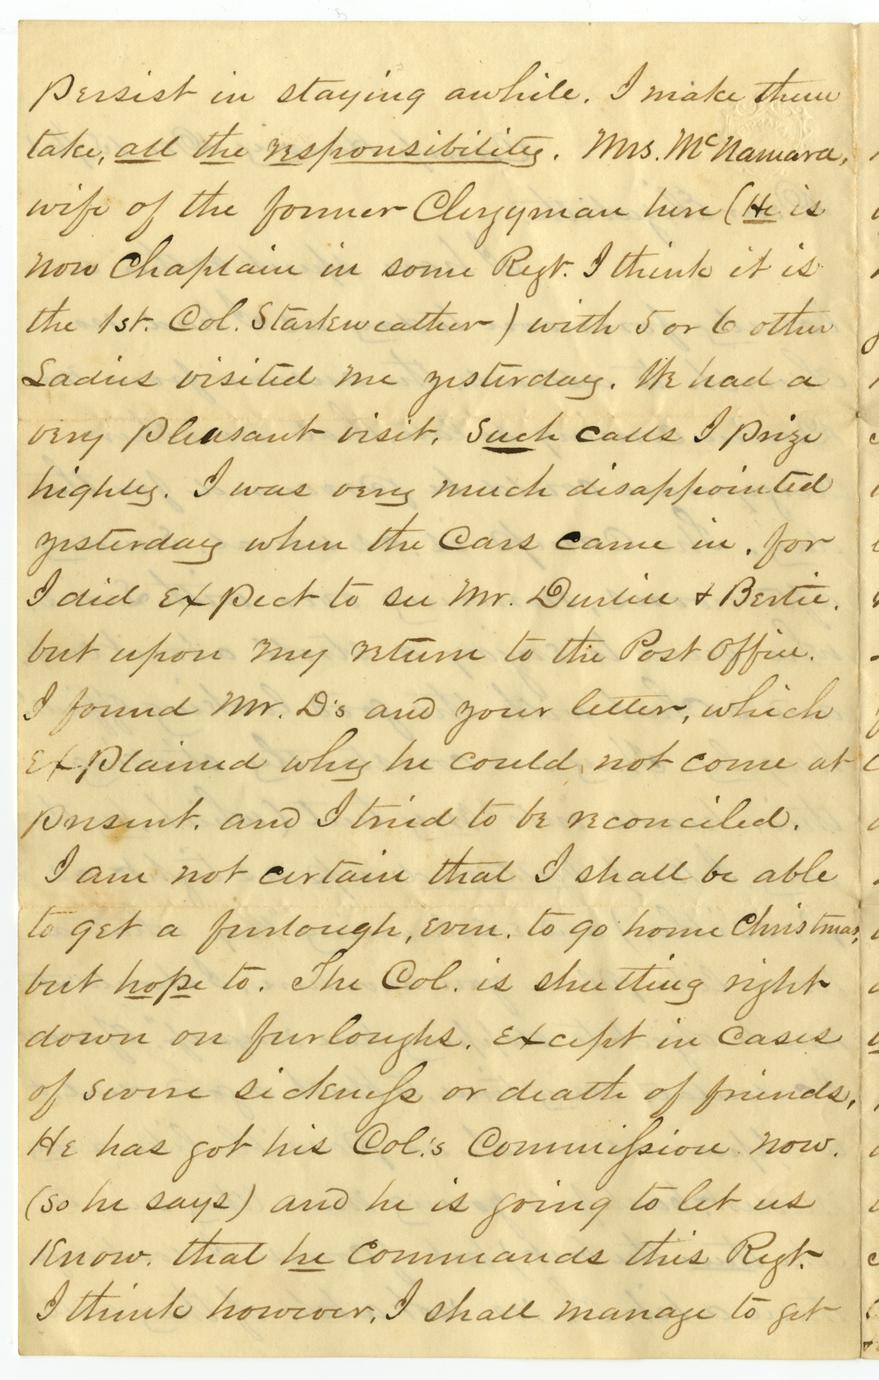 Persist in staying awhile. I make them
take, all the responsibility. Mrs. McNamara,
wife of the former Clergyman here (He is
now Chaplain in some Regt. I think it is
the 1st. Col. Starkweather) with 5 or 6 other
Ladies visited me yesterday. We had a
very pleasant visit. Such calls I prize
highly. I was very much disappointed
yesterday when the Cars came in. for
I did expect to see Mr. Durlin & Bertie.
but upon my return to the Post Office.
I found Mr. D's and your letter, which
Explained why he could not come at
present. and I tried to be reconciled.
I am not certain that I shall be able
to get a furlough, even. to go home Christmas,
but hope to. The Col. is shutting right
down on furloughs. Except in cases
of severe sickness or death of friends,
He has got his Col.'s Commission now.
(so he says) and he is going to let us
Know. that he commands this Regt.
I think however, I shall manage to get